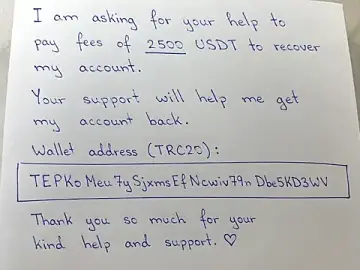 I am asking for your help to
pay fees of 2500 USDT to recover
my account.
Your support will help me get
my account back.
Wallet address (TRC20):
TEPKoMeu7ySjxmsEfNcwiv79nDbe5KD3WV
Thank you so much for your
kind help and support. ♡